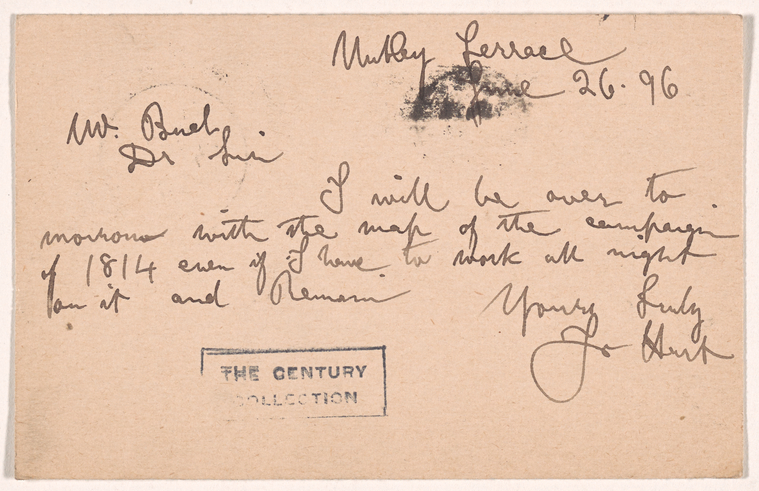 Terrace
June 26. 96
Mr. Buel
Dr Sir
I will be over to
morrow with the map of the campaign
of 1814 even if I have to work all night
on it and Remain
Yours Truly
Hart
THE CENTURY
COLLECTION